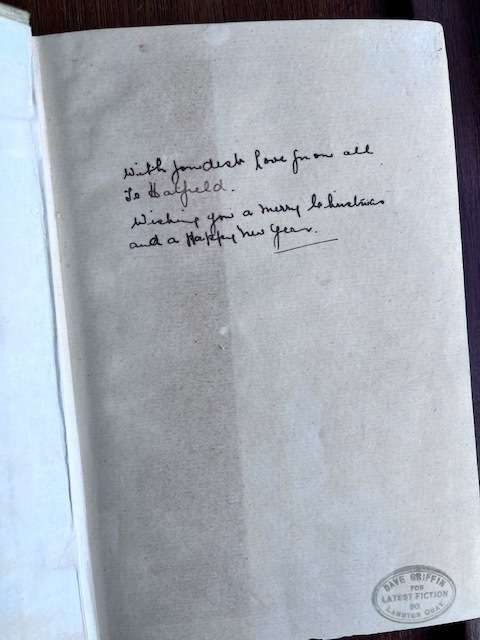 With fondest love from all
To Hatfield.
Wishing you a merry Christmas
and a Happy New Year.
DAVE GRIFFIN
FOR
LATEST FICTION
90
LAMBTON QUAY.